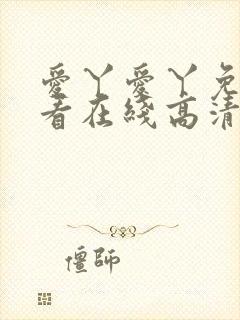 愛丫愛丫免
看在綫高清
僵師